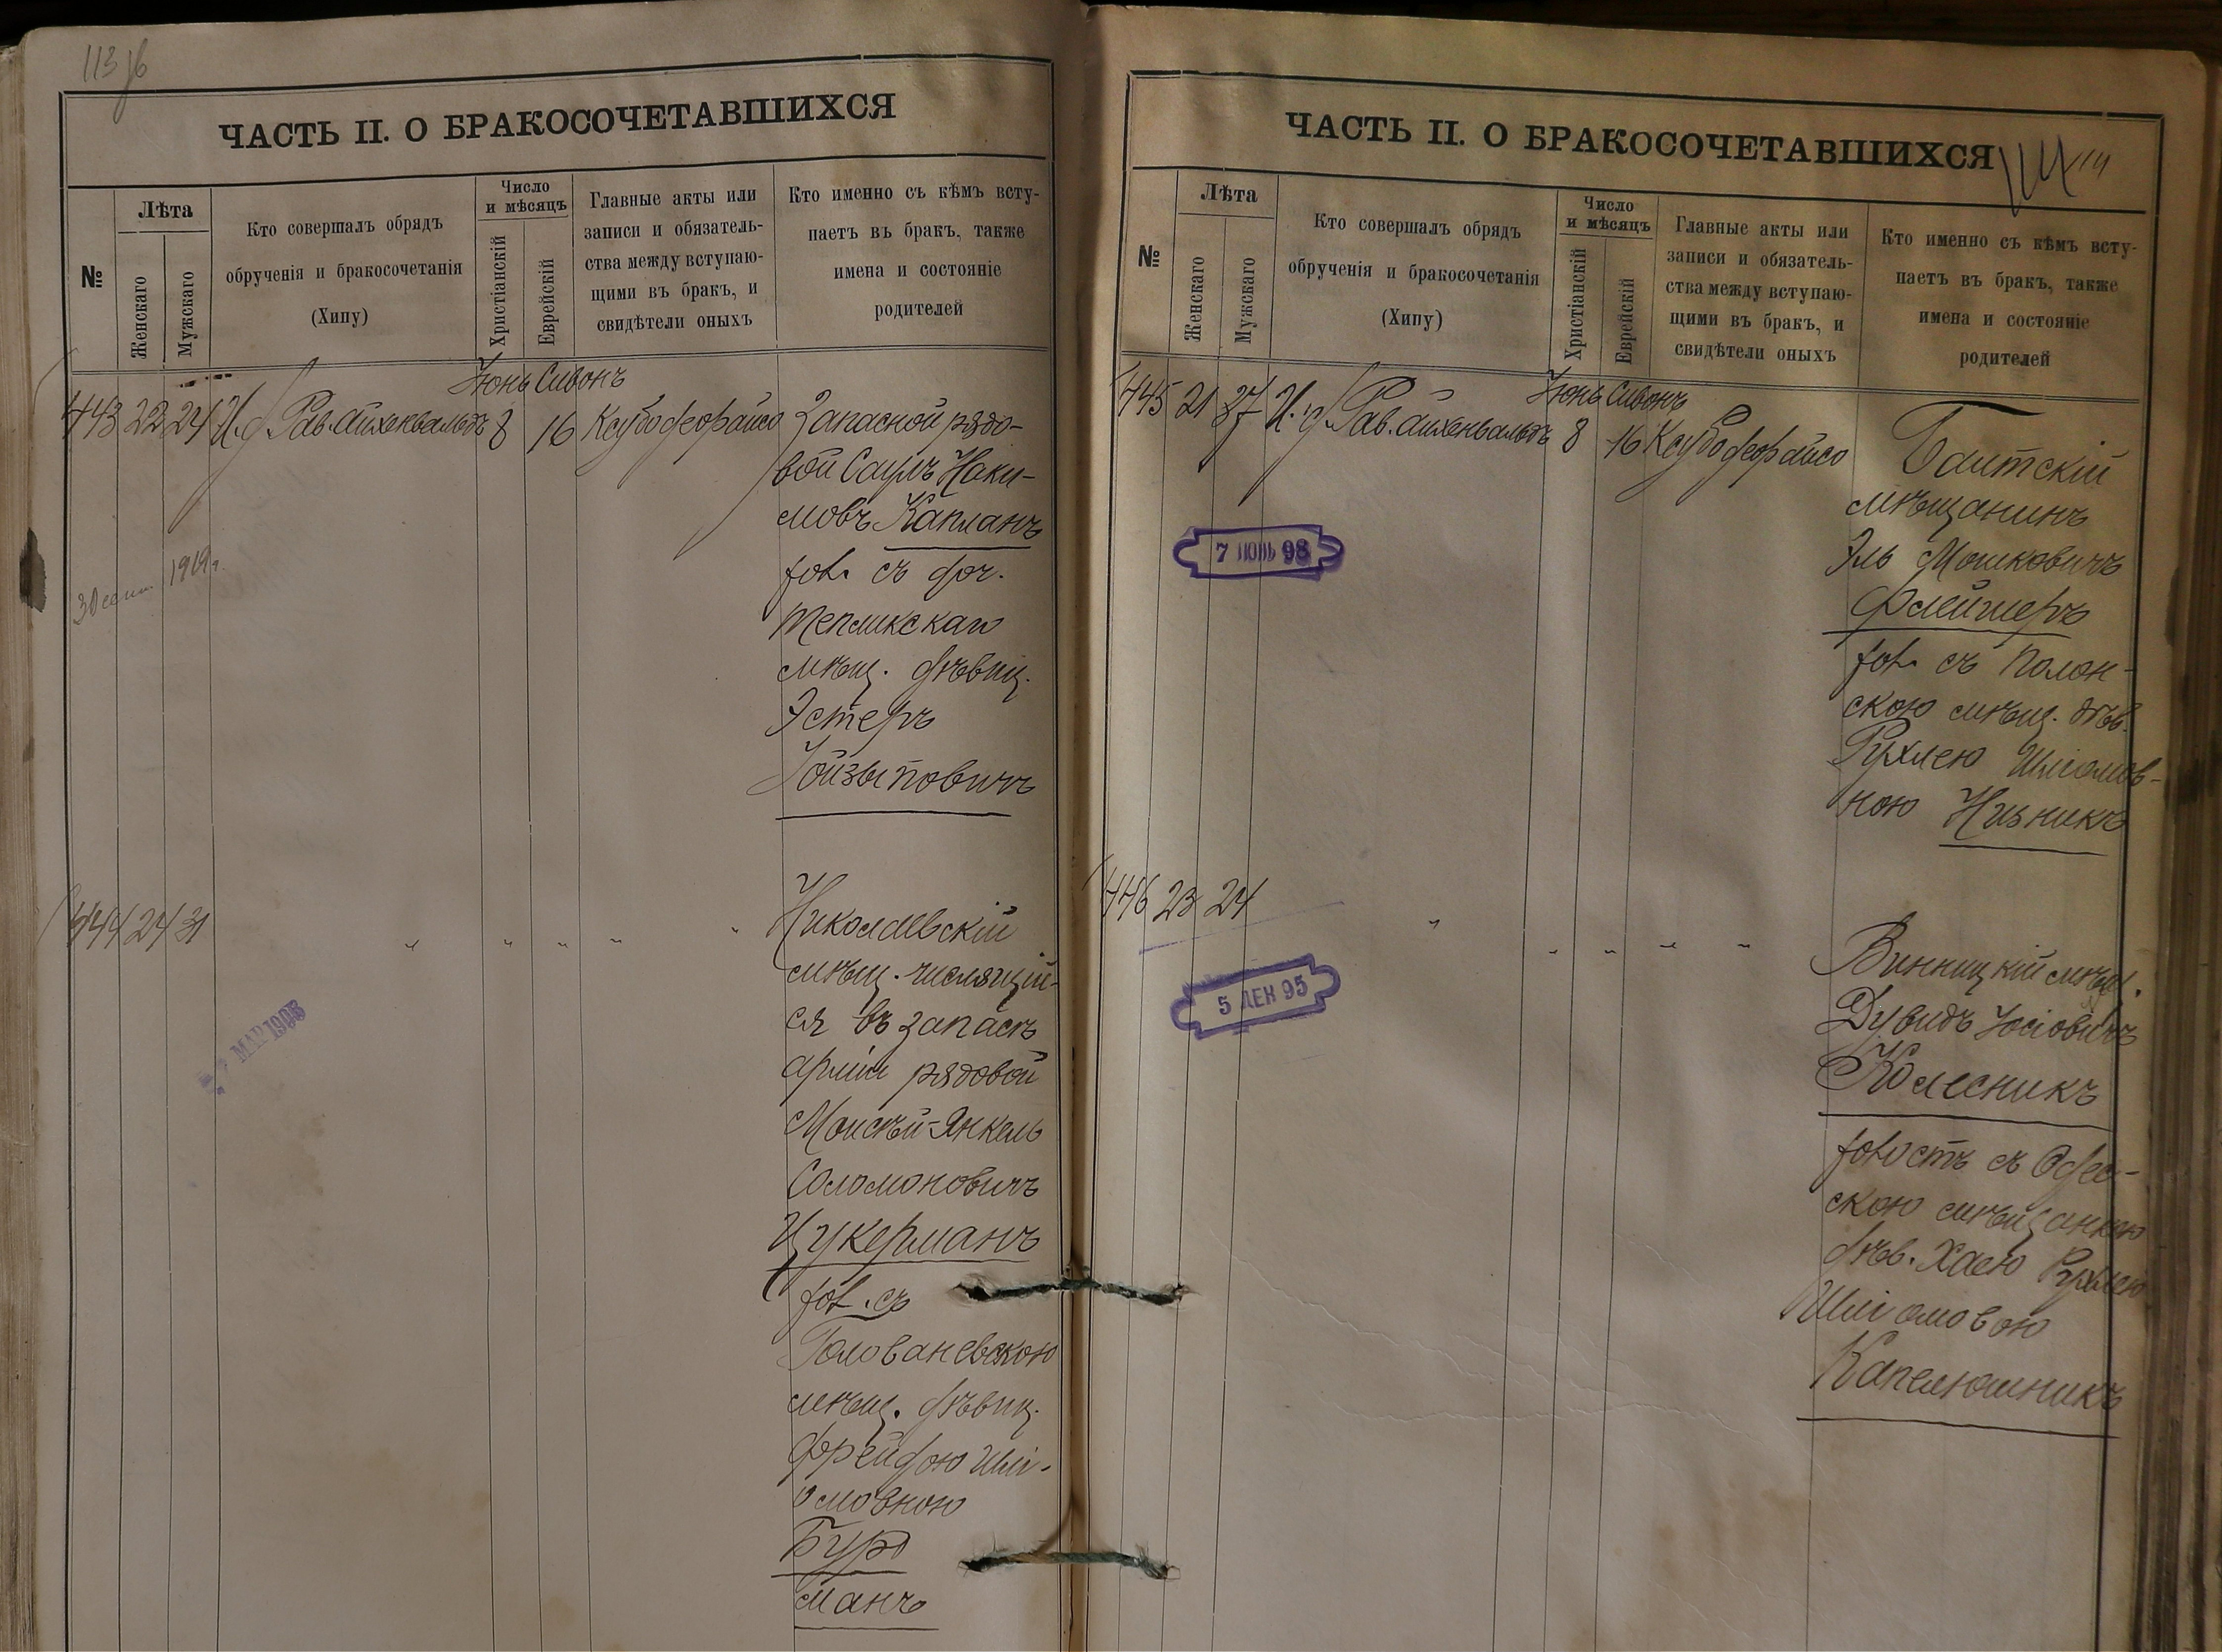 113 об
ЧАСТЬ II. О БРАКОСОЧЕТАВШИХСЯ
№
Лѣта
Женскаго
Мужскаго
Кто совершалъ обрядъ
обрученія и бракосочетанія
(Хипу)
Число
и мѣсяцъ
Христіанскій
Еврейскій
Главные акты или
записи и обязатель-
ства между вступаю-
щими въ бракъ, и
свидѣтели оныхъ
Кто именно съ кѣмъ всту-
паетъ въ бракъ, также
имена и состояніе
родителей
Іюнь Сивонъ
443 22 24 И. д. Рав. Айхенвальдъ 8 16 Ксубо деорайсо Запасной рядо-
вой Саулъ Наки-
мовъ Капланъ
съ доч.
Тепликскаго
мѣщ. дѣвиц.
Эстеръ
Іойзыповичъ
30 сент. 1919 г.
444 24 31 " " " " "
Николаевскій
мѣщ. числящій-
ся въ запасѣ
арміи рядовой
Моисей-Янкель
Соломоновичъ
Цукерманъ
съ
Голованевскою
мѣщ. дѣвиц.
Фрейдою Шлі-
омовною
Бурд
манъ
МАР 1906
ЧАСТЬ II. О БРАКОСОЧЕТАВШИХСЯ
114
№
Лѣта
Женскаго
Мужскаго
Кто совершалъ обрядъ
обрученія и бракосочетанія
(Хипу)
Число
и мѣсяцъ
Христіанскій
Еврейскій
Главные акты или
записи и обязатель-
ства между вступаю-
щими въ бракъ, и
свидѣтели оныхъ
Кто именно съ кѣмъ всту-
паетъ въ бракъ, также
имена и состояніе
родителей
Іюнь Сивонъ
445 21 27 И. д. Рав. Айхенвальдъ 8 16 Ксубо деорайсо
Балтскій
мѣщанинъ
Эль Мошковичъ
Флейшеръ
съ Полон-
скою мѣщ. дѣв.
Рухлею Шліомов-
ною
7 ІЮНЬ 98
446 23 24 " " " " "
Винницкій мѣщ.
Дувидъ Іосіовичъ
Колесникъ
съ Одес-
скою мѣщанкою
дѣв. Хаею Рухлею
Шліомовою
Капелюшникъ
5 ДЕК 95